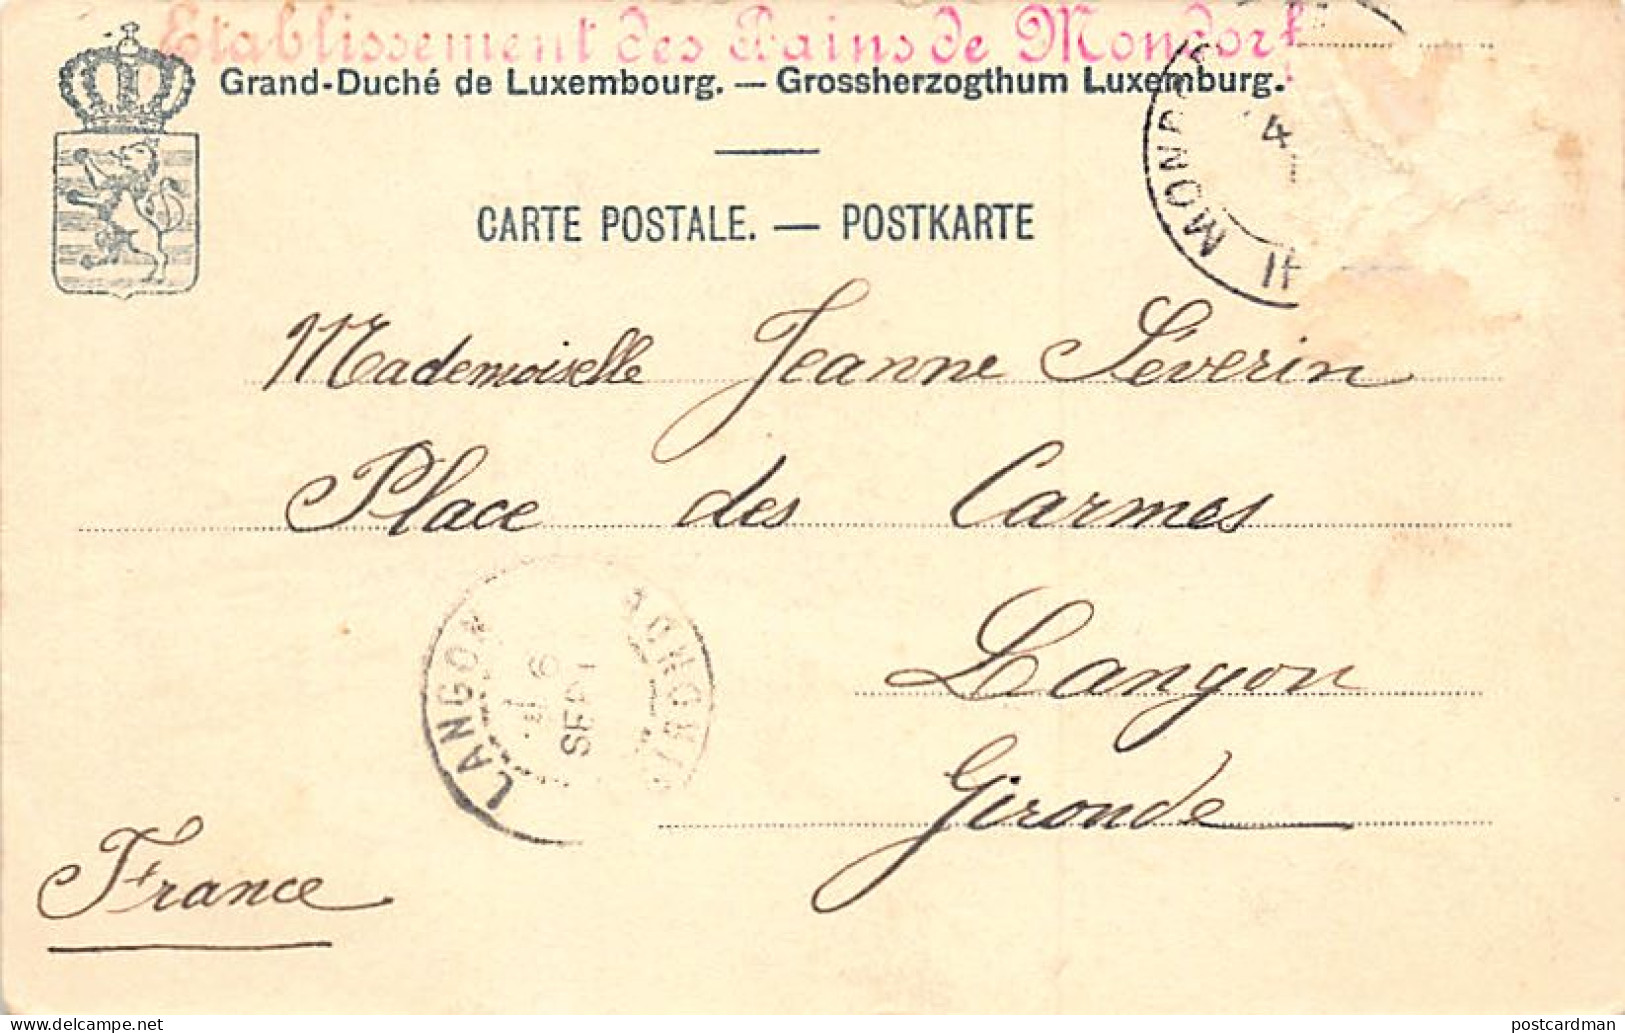 Etablissement des Bains de Mondorf
Grand-Duché de Luxembourg. — Grossherzogthum Luxemburg.
CARTE POSTALE. — POSTKARTE
4
Mademoiselle Jeanne Séverin
Place des Carmes
Langon
Gironde
France
LANGON
6
SEPT
postcardman